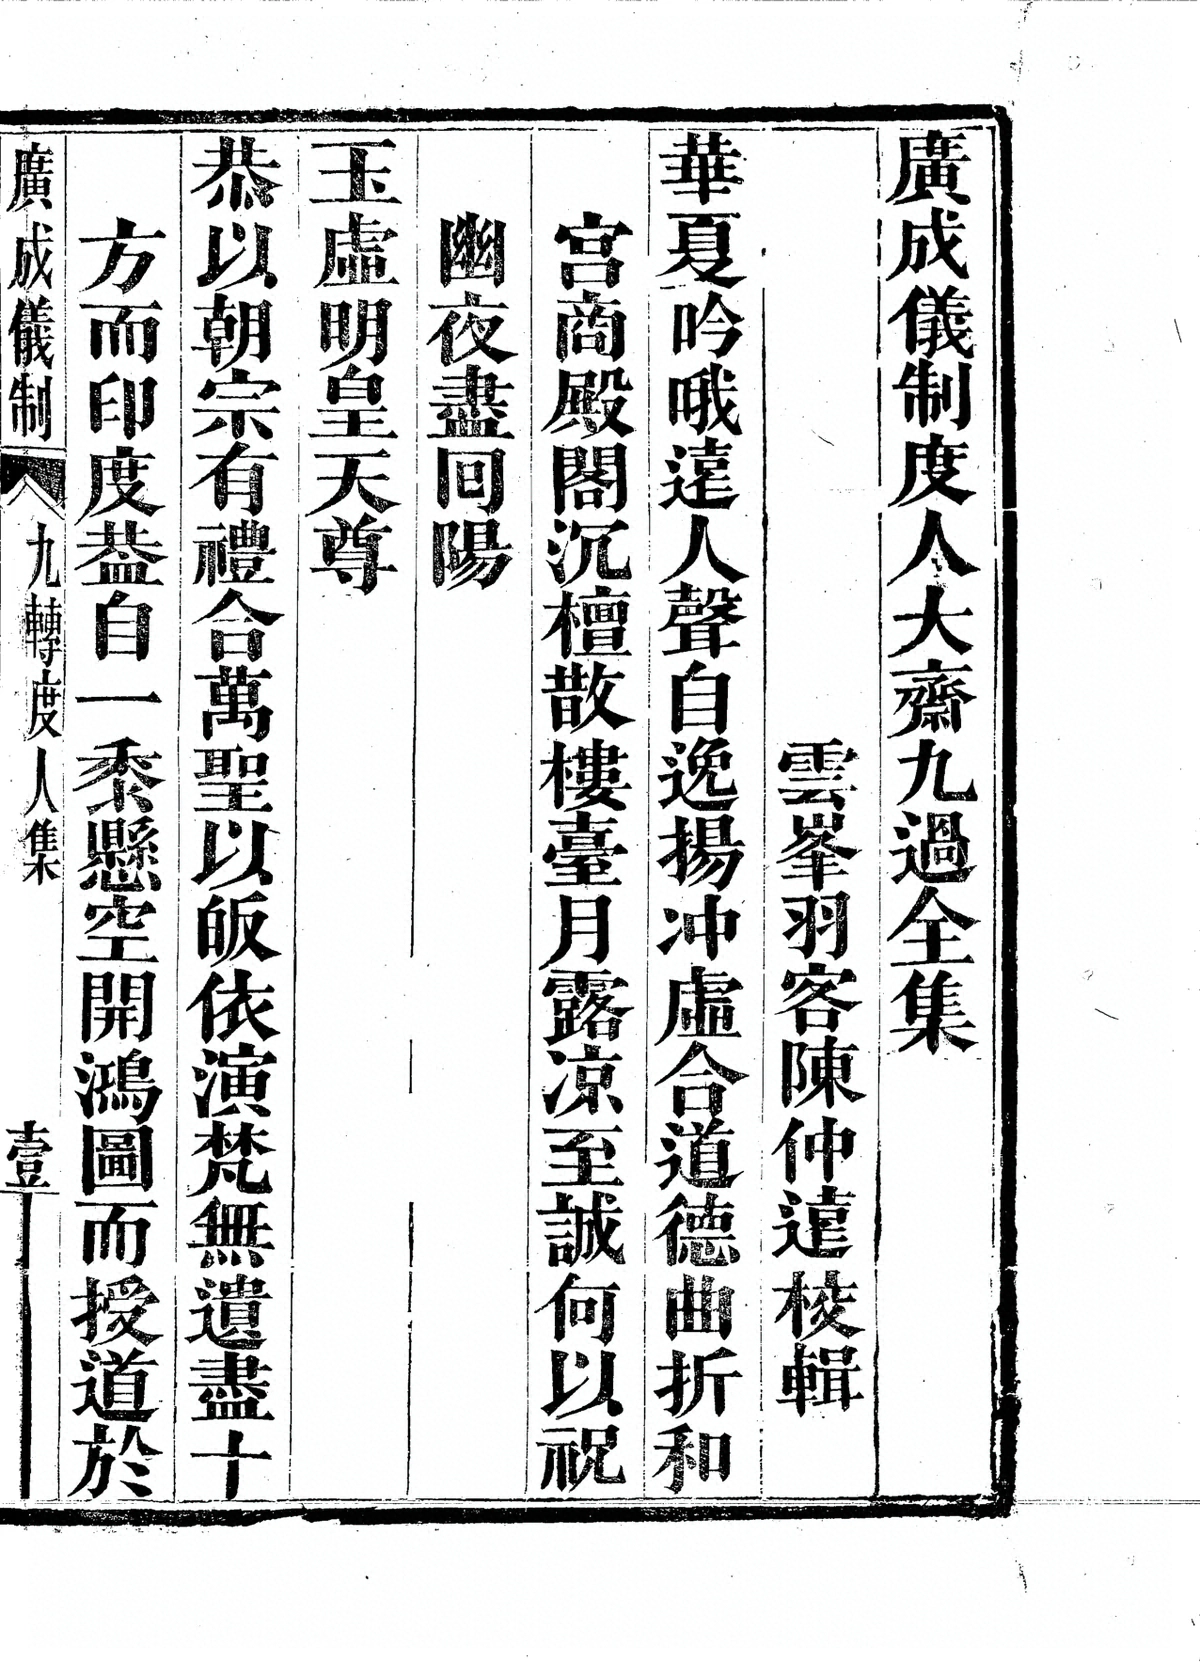 廣成儀制度人大齋九過全集
雲峯羽客陳仲遠校輯
華夏吟哦遠人聲自逸揚冲虛合道德曲折和
宫商殿閣沉檀散樓臺月露凉至誠何以祝
幽夜盡回陽
玉虛明皇天尊
恭以朝宗有禮合萬聖以皈依演梵無遺盡十
方而印度葢自一黍懸空開鴻圖而授道於
廣成儀制 九轉度人集 壹